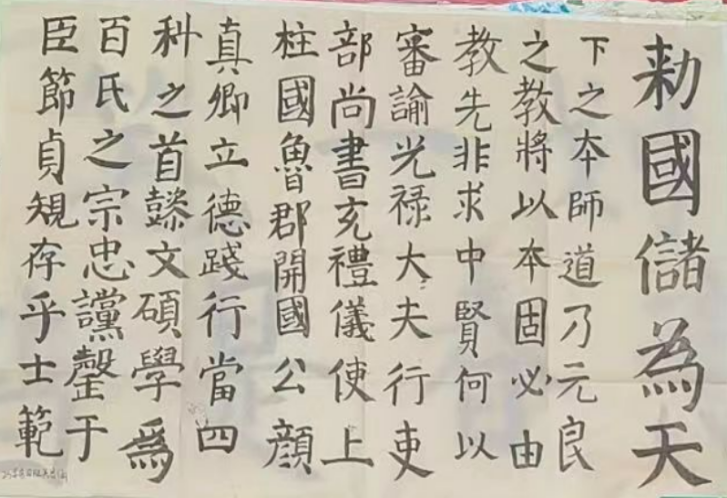 勑國儲為天
下之夲師道乃元良
之教將以本固必由
教先非求中賢何以
審諭光祿大夫行吏
部尚書充禮儀使上
柱國魯郡開國公顏
真卿立德踐行當四
科之首懿文碩學爲
百氏之宗忠讜罄于
臣節貞規存乎士範